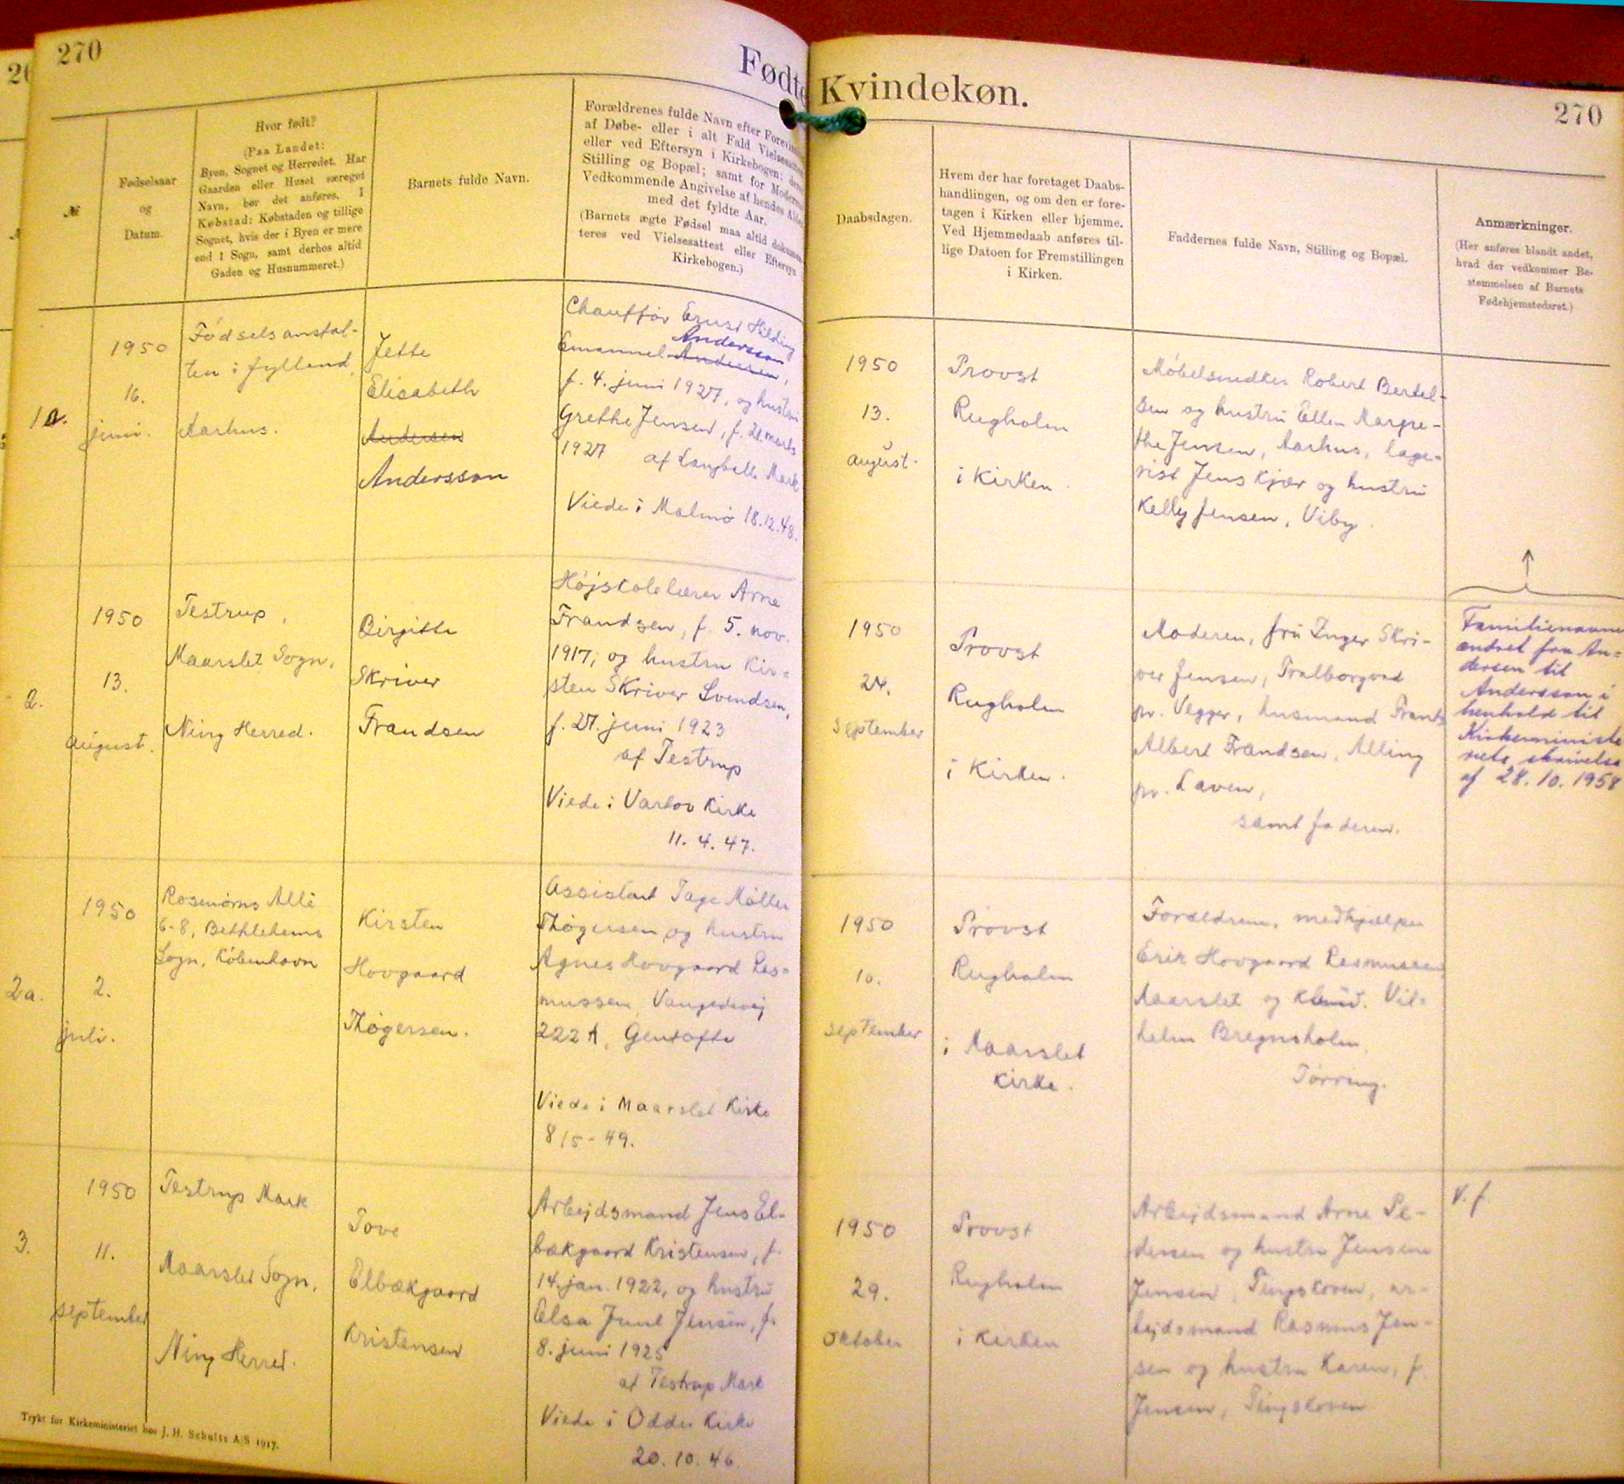 270
Fødte
Kvindekøn.
270
№
Fødselsaar
og
Datum.
Hvor født?
(Paa Landet:
Byen, Sognet og Herredet. Har
Gaarden eller Huset særeget
Navn, bør det anføres. I
Købstad: Købstaden og tillige
Sognet, hvis der i Byen er mere
end 1 Sogn, samt derhos altid
Gaden og Husnummeret.)
Barnets fulde Navn.
Forældrenes fulde Navn efter
af Døbe- eller i alt Fald
eller ved Eftersyn i Kirkebogen;
Stilling og Bopæl; samt for
Vedkommende Angivelse af hendes
med det fyldte Aar.
(Barnets ægte Fødsel maa altid dokumen-
teres ved Vielsesattest eller Eftersyn
Kirkebogen.)
Daabsdagen.
Hvem der har foretaget Daabs-
handlingen, og om den er fore-
tagen i Kirken eller hjemme.
Ved Hjemmedaab anføres til-
lige Datoen for Fremstillingen
i Kirken.
Faddernes fulde Navn, Stilling og Bopæl.
Anmærkninger.
(Her anføres blandt andet,
hvad der vedkommer Be-
stemmelsen af Barnets
Fødehjemstedsret.)
1a.
1950
16.
juni.
Fødselsanstal-
ten i Jylland,
Aarhus.
Jette
Elisabeth
Andersen
Andersson
Chauffør Ernst Hilding
Andersson
Emanuel Andersen,
f. 4. juni 1927, og hustru
Grethe Jensen, f. 21. marts
1927 af Langballe Mark
Viede i Malmø 18.12.48.
1950
13.
august.
Provst
Rugholm
i Kirken.
Møbelsnedker Robert Bertel-
sen og hustru Ellen Margre-
the Jensen, Aarhus, lage-
rist Jens Kjær og hustru
Kelly Jensen, Viby.
2.
1950
13.
august.
Testrup,
Maarslet Sogn,
Ning Herred.
Birgitte
Skriver
Frandsen
Højskolelærer Arne
Frandsen, f. 5. nov.
1917, og hustru Kir-
sten Skriver Svendsen,
f. 27. juni 1923
af Testrup
Viede i Vartov Kirke
11. 4. 47.
1950
24.
september
Provst
Rugholm
i Kirken.
Moderen, fru Inger Skri-
ver Jensen,
pr. Vegger, husmand Frants
Albert Frandsen, Alling
pr. Laven,
samt faderen.
Familienavnet
ændret fra An-
dersen til
Andersson i
henhold til
Kirkeministe
riets skrivelse
af 28. 10. 1958
2a.
1950
2.
juli.
Rosenørns Allé
6-8, Bethlehems
Sogn, København
Kirsten
Hovgaard
Thøgersen.
Assistent Tage Møller
Thøgersen og hustru
Agnes Hovgaard Ras-
mussen, Vangedevej
222 A, Gentofte
Viede i Maarslet Kirke
8/5-49.
1950
10.
september
Provst
Rugholm
i Maarslet
Kirke.
Forældrene, medhjælper
Erik Hovgaard Rasmussen
Maarslet og Vil-
helm Bregnsholm,
Tørring.
3.
1950
11.
september
Testrup Mark
Maarslet Sogn,
Ning Herred.
Tove
Elbækgaard
Kristensen
Arbejdsmand Jens El-
bækgaard Kristensen, f.
14. jan. 1922, og hustru
Elsa Juul Jensen, f.
8. juni 1925
af Testrup Mark
Viede i Odder Kirke
20. 10. 46.
1950
29.
oktober
Provst
Rugholm
i Kirken
Arbejdsmand Arne Pe-
dersen og hustru Jensine
Jensen, Tingskoven, ar-
bejdsmand Rasmus Jen-
sen og hustru Karen, f.
Jensen, Tingskoven
V. f.
Trykt for Kirkeministeriet hos J. H. Schultz A/S 1917.